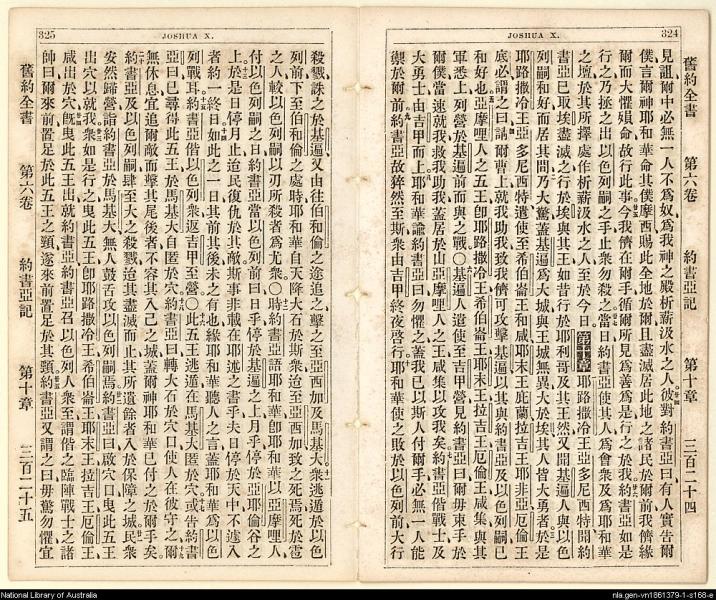 JOSHUA X. 324
舊約全書 第六卷 約書亞記 第十章 三百二十四
見詛爾中必無一人不爲奴爲我神之殿析薪汲水之人彼對約書亞曰有人實告爾
僕言爾神耶和華命其僕摩西賜此全地於爾且盡滅居此地之諸民於爾前我儕緣
爾而大懼殞命故行此事今我儕在爾手循爾所見爲善爲是行之於我約書亞如是
行之乃拯之出以色列嗣之手止衆勿殺之當日約書亞使其人爲會衆及爲耶和華
之壇於其所擇處作析薪汲水之人至於今日第十章耶路撒冷王亞多尼西特聞約
書亞已取埃盡滅之行於埃與其王如昔行於耶利哥及其王然又聞基遍人與以色
列嗣和好而居其間乃大驚蓋基遍爲大城與王城無異大於埃其人皆大勇者於是
耶路撒冷王亞多尼西特遣使至希伯崙王和咸耶末王庇蘭拉吉王耶非亞厄倫王
底必謂之曰請爾曹上就我助我致我儕可攻擊基遍以其與約書亞及以色列嗣已
和好也亞摩哩人之五王卽耶路撒冷王希伯崙王耶末王拉吉王厄倫王咸集與其
軍悉上列營於基遍前而與之戰○基遍人遣使至吉甲營見約書亞曰爾毋束手於
爾僕當速就我救我助我蓋居於山亞摩哩人之王咸集以攻我矣約書亞偕戰士及
大勇士由吉甲而上耶和華諭約書亞曰勿懼之蓋我已以斯人付爾手必無一人能
禦於爾前約書亞故猝然至斯衆由吉甲終夜啓行耶和華使之敗於以色列前大行
325 JOSHUA X.
殺戮誅之於基遍又由往伯和倫之途追之擊之至亞西加及馬基大衆逃遁於以色
列前下至伯和倫之處時耶和華自天降大石於斯衆迨至亞西加致之死焉死於雹
之人較以色列嗣以刃所殺者爲尤衆○時約書亞語耶和華卽耶和華以亞摩哩人
付以色列嗣之日約書亞當以色列前曰日乎停於基遍之上月乎停於亞耶倫谷之
上於是日停月止迨民復仇於其敵斯事非載在耶述之書乎夫日停於天中不遽入
者約一終日如此之一日其前其後未之有也緣耶和華聽人之言蓋耶和華爲以色
列戰耳約書亞偕以色列衆返吉甲至營○此五王逃遁在馬基大匿於穴或告約書
亞曰已尋得此五王於馬基大自匿於穴約書亞曰轉大石於穴口使人在彼守之爾
無休息宜追爾敵而擊其尾後者不容其入己之城蓋爾神耶和華已付之於爾手矣
約書亞及以色列嗣肆至大之殺戮迨其盡滅而止其所遺餘者入於保障之城民衆
安然歸營詣約書亞於馬基大無人鼓舌攻以色列嗣焉約書亞曰啟穴口曳此五王
出穴以就我衆如是行之曳此五王卽耶路撒冷王希伯崙王耶末王拉吉王厄倫王
咸出於穴旣曳此五王出就約書亞約書亞召以色列人衆至謂偕之臨陣戰士之諸
帥曰爾來前置足於此五王之頸遂來前置足於其頸約書亞又謂之曰毋驚勿懼宜
舊約全書 第六卷 約書亞記 第十章 三百二十五
National Library of Australia
nla.gen-vn1861379-1-s168-e